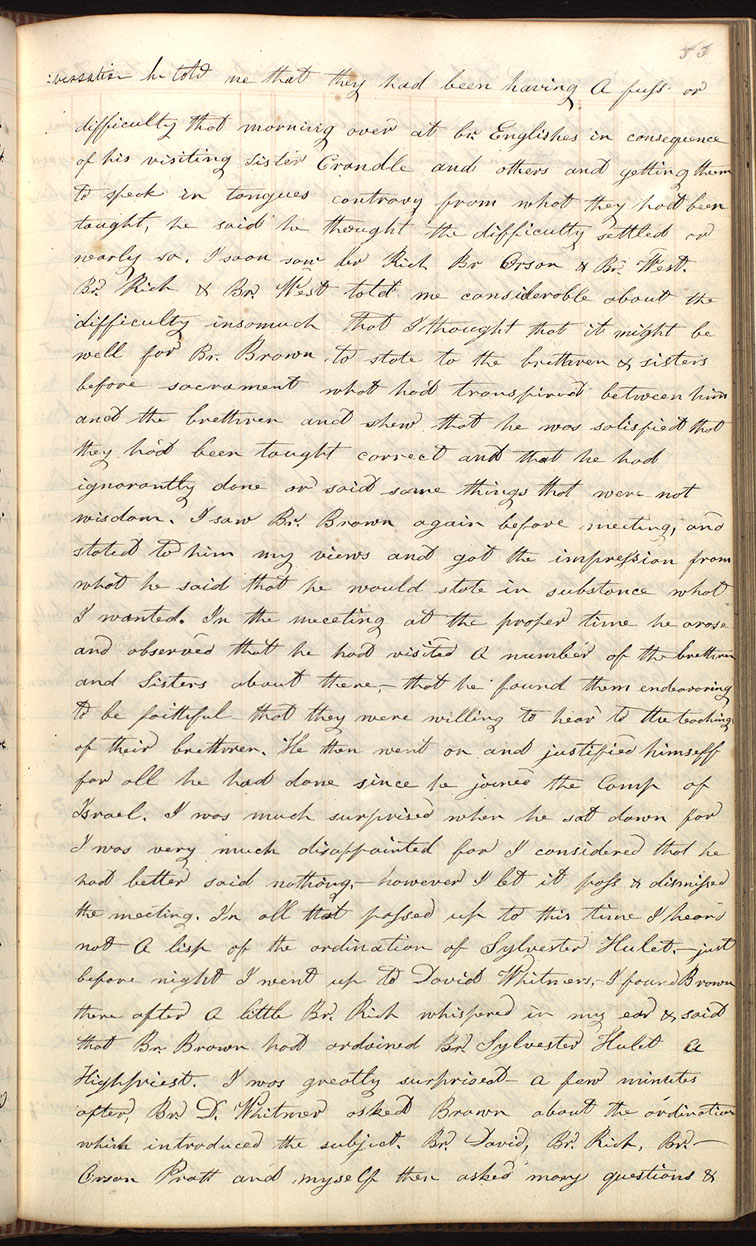 53
:versation he told me that they had been having A fuss or
difficulty that morning over at br. Englishes in consequence
of his visiting Sister Crandle and others and getting them
to speek in tongues contrary from what they had been
taught, he said he thought the difficulty settled or
nearly so. I soon saw br Rich Br Orson & Br. West.
Br. Rich & Br. West told me considerable about the
difficulty insomuch that I thought that it might be
well for Br. Brown to state to the brethren & sisters
before sacrament what had transpired between him
and the brethren and shew that he was satisfied that
they had been taught correct and that he had
ignorantly done or said some things that were not
wisdom. I saw Br. Brown again before meeting, and
stated to him my views and got the impression from
what he said that he would state in substance what
I wanted. In the meeting at the proper time he arose
and observed that he had visited A number of the brethren
and Sisters about there,— that he found them endeavoring
to be faithful that they were willing to hear to the teaching
of their brethren. He then went on and justified himself
for all he had done since he joined the Camp of
Israel. I was much surprised when he sat down for
I was very much disappointed for I considered that he
had better said nothing,— however I let it pass & dismissed
the meeting. In all that passed up to this time I heard
not A lisp of the ordination of Sylvester Hulet.— just
before night I went up to David Whitmers,— I found Brown
there after a little Br. Rich whispered in my ear & said
that Br. Brown had ordained Br. Sylvester Hulet a
Highpriest. I was greatly surprised— a few minutes
after, Br. D. Whitmer asked Brown about the ordination
which introduced the subject. Br. David, Br. Rich, Br.—
Orson Pratt and myself then asked many questions &